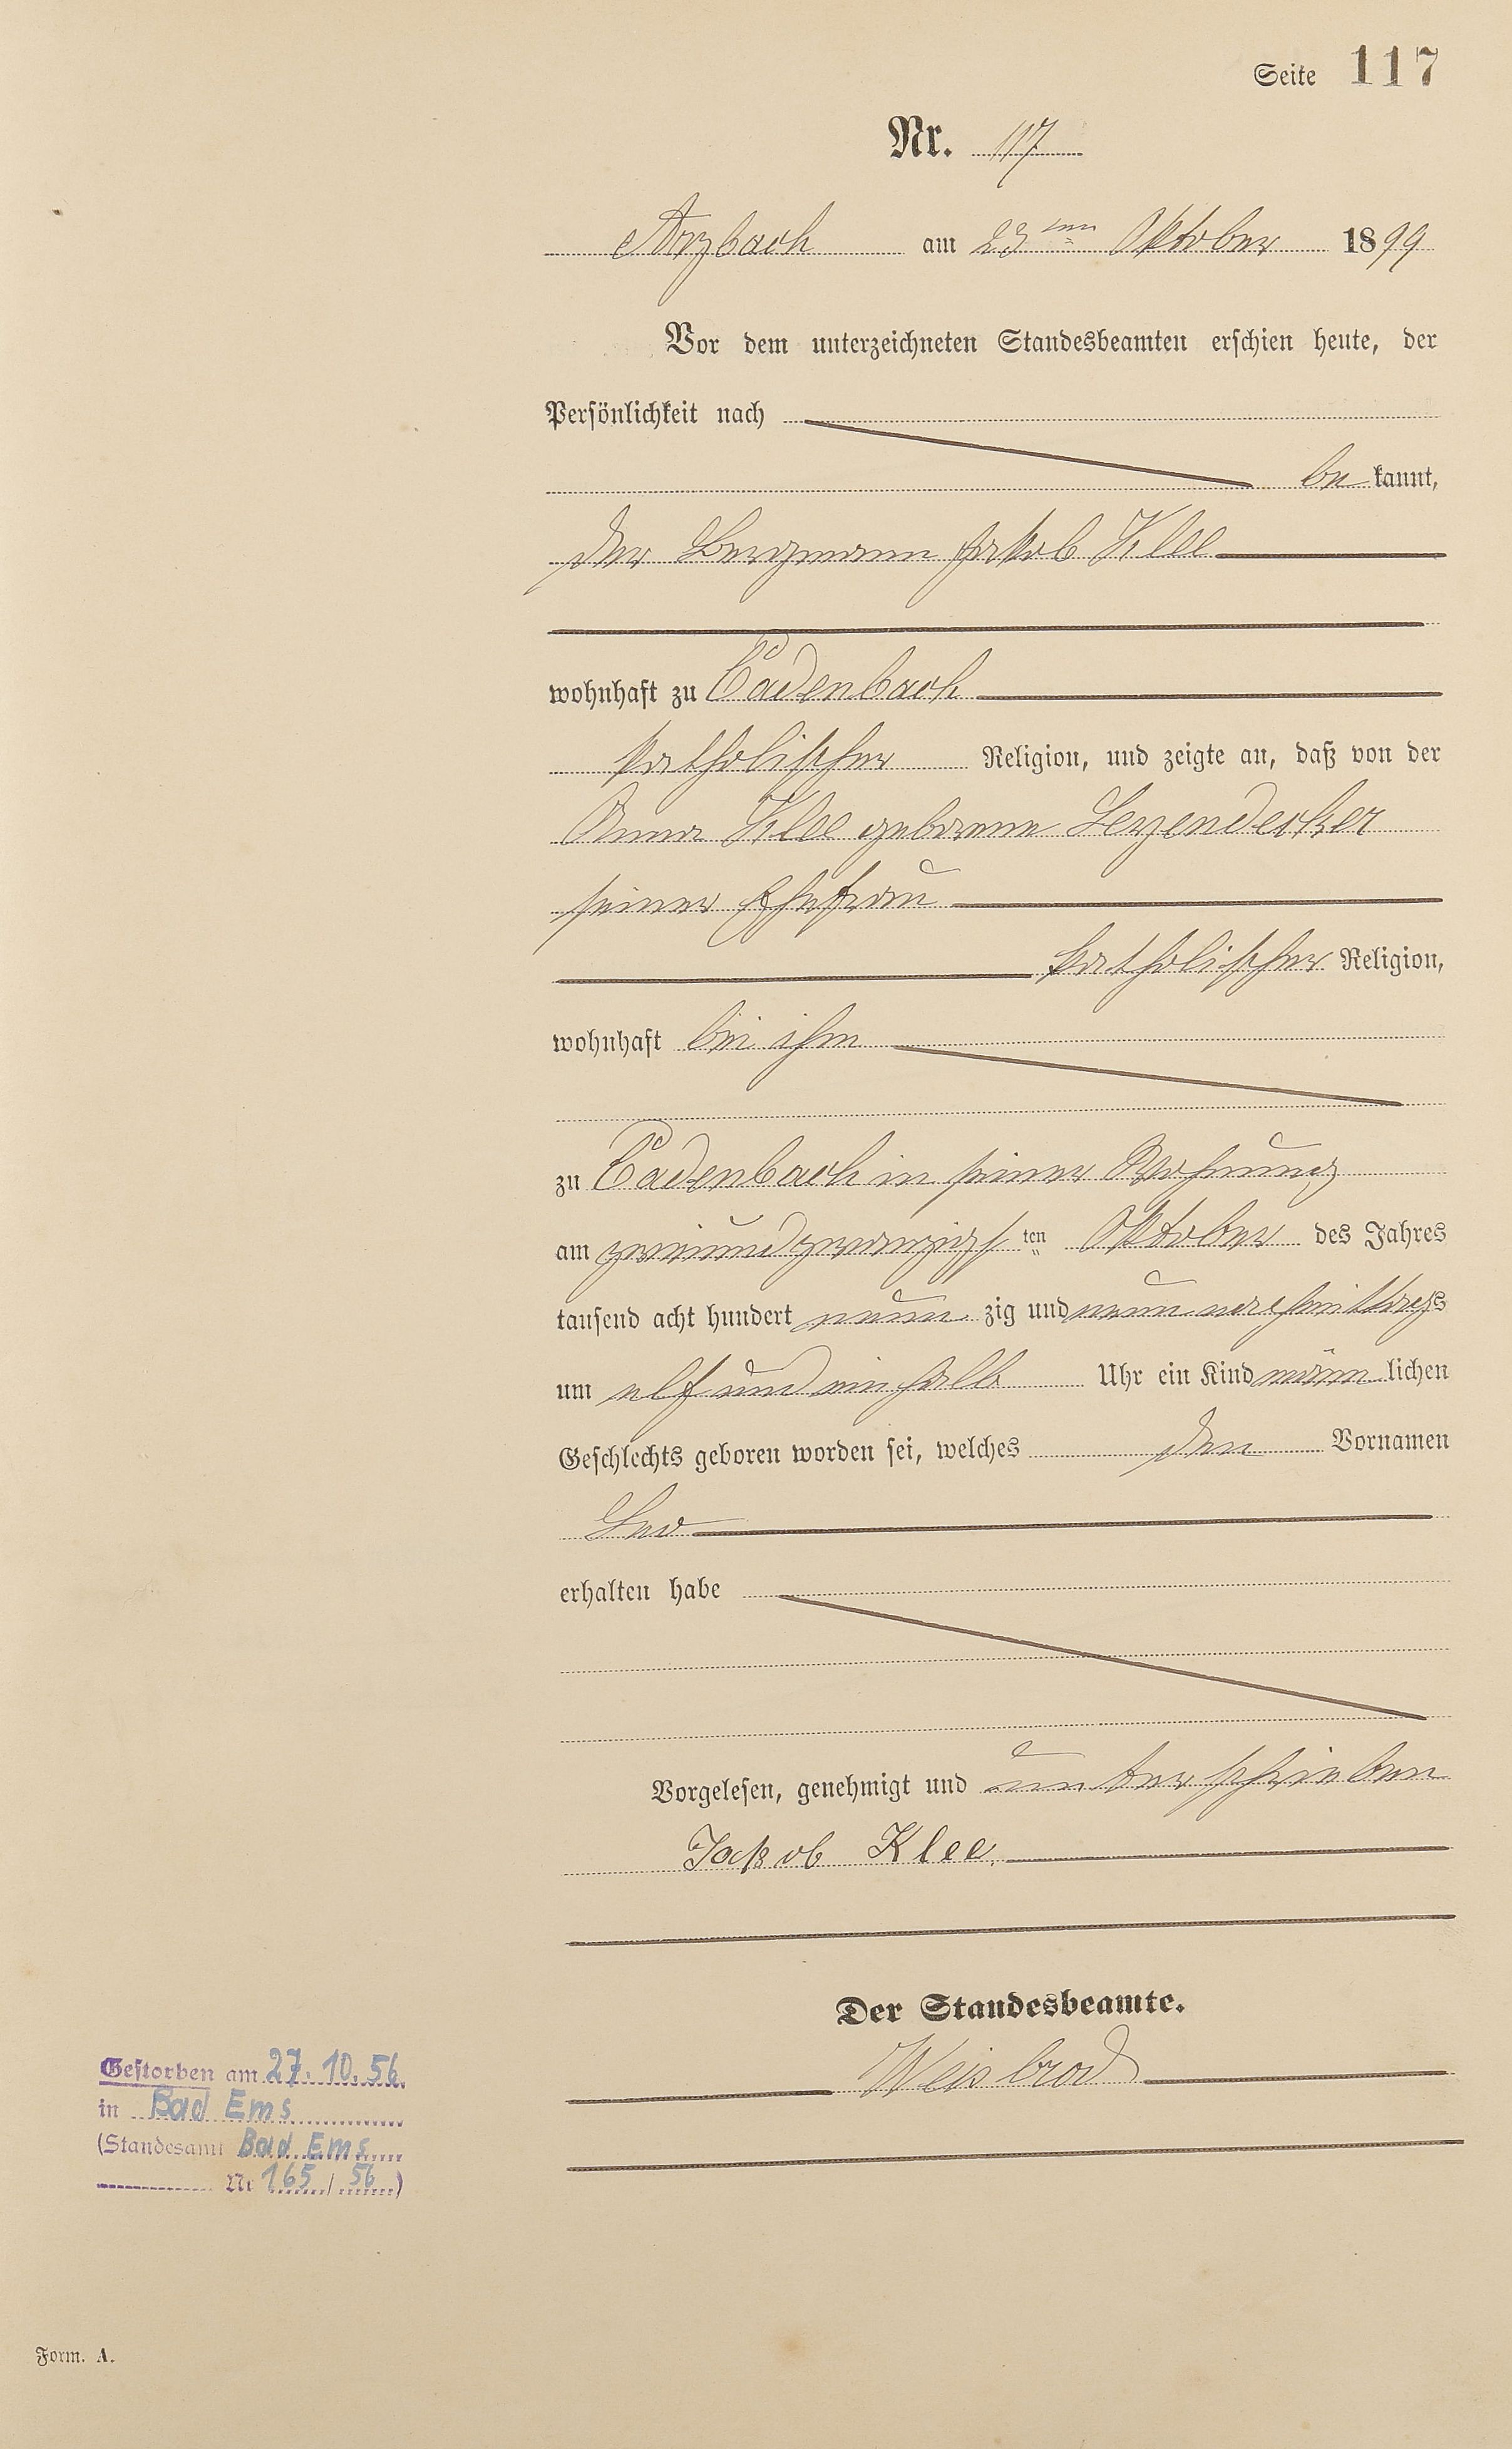 Seite 117
Nr. 117
Arzbach am 23ten Oktober 1899
Vor dem unterzeichneten Standesbeamten erschien heute, der
Persönlichkeit nach
bekannt,
der Bergmann Jakob Klee
wohnhaft zu Cadenbach
katholischer Religion, und zeigte an, daß von der
Anna Klee geborene Legendecker
seiner Ehefrau
katholischer Religion,
wohnhaft bei ihm
zu Cadenbach in seiner Wohnung
am zweiundzwanzigsten Oktober des Jahres
tausend acht hundert neunzig und neun nachmittags
um elf und ein halb Uhr ein Kind männlichen
Geschlechts geboren worden sei, welches den Vornamen
Leo
erhalten habe
Vorgelesen, genehmigt und unterschrieben
Jakob Klee.
Der Standesbeamte.
Weisbrod
Gestorben am 27.10.56.
in Bad Ems
(Standesamt Bad Ems
Nr 165/56)
Form. A.